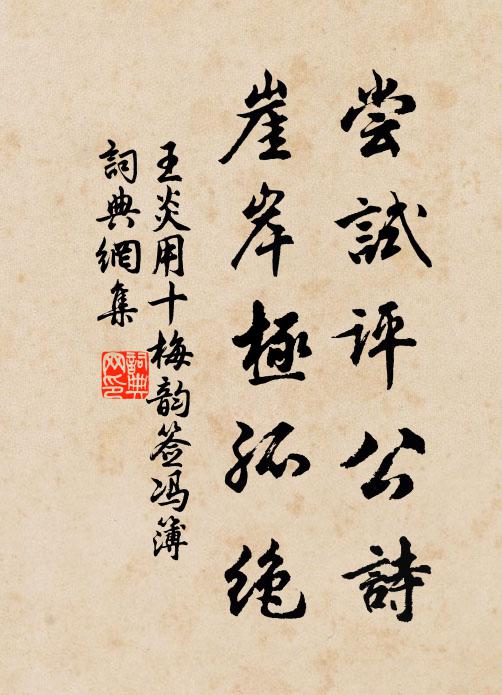 尝試评公詩
崖岸極孤绝
王炎用十梅韵签冯簿
詞典網集
詞典
网印